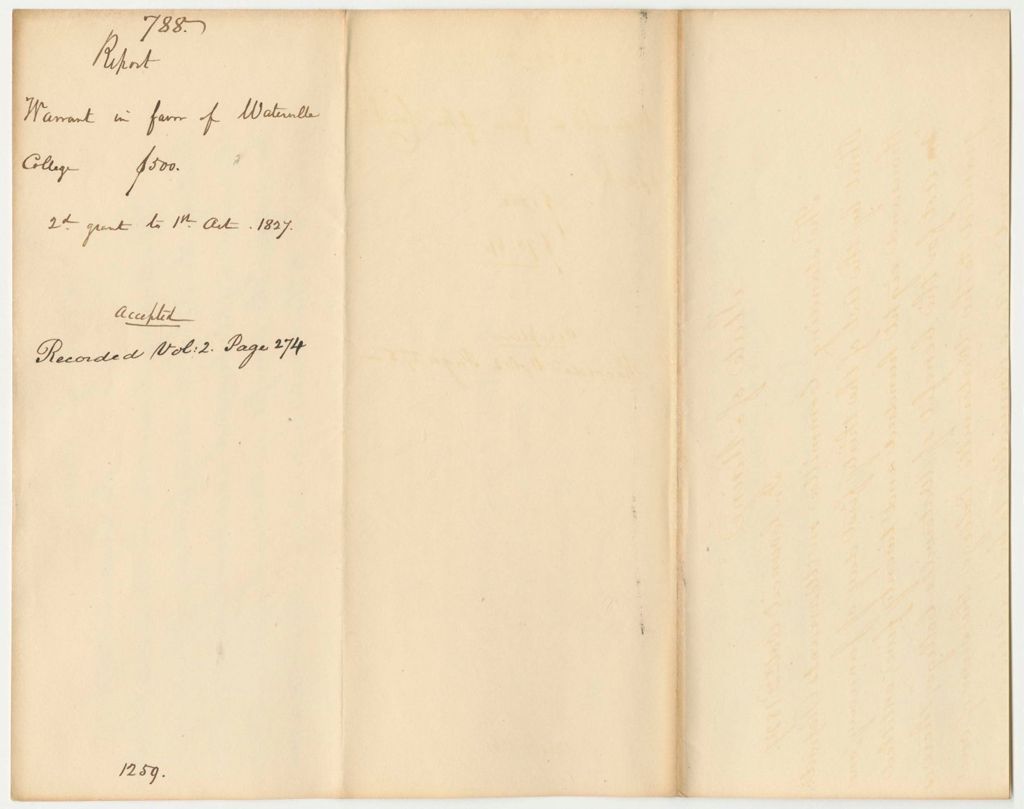 788.
Report
Warrant in favor of Waterville
College $500.
2d. grant to 1st. Oct. 1827.
Accepted
Recorded Vol: 2. Page 274
1259.